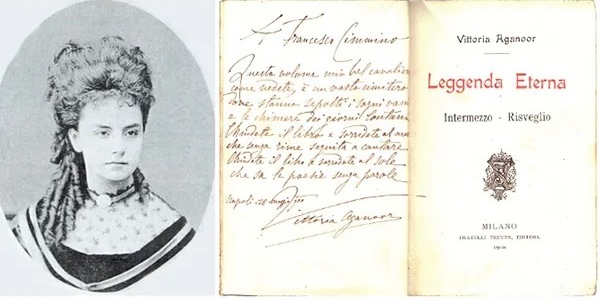 A Francesco Cimmino
Questo volume mio bel cavaliere
come vedete, è un vasto cimitero
dove stanno sepolti i sogni vani
e le chimere dei giorni lontani
Chiudete il libro e sorridete al
che senza rime seguita a cantare
Chiudete il libro e sorridete al sole
che sa le poesie senza parole
Napoli
Vittoria Aganoor
Vittoria Aganoor
Leggenda Eterna
Intermezzo - Risveglio
MILANO
FRATELLI TREVES, EDITORI
1900